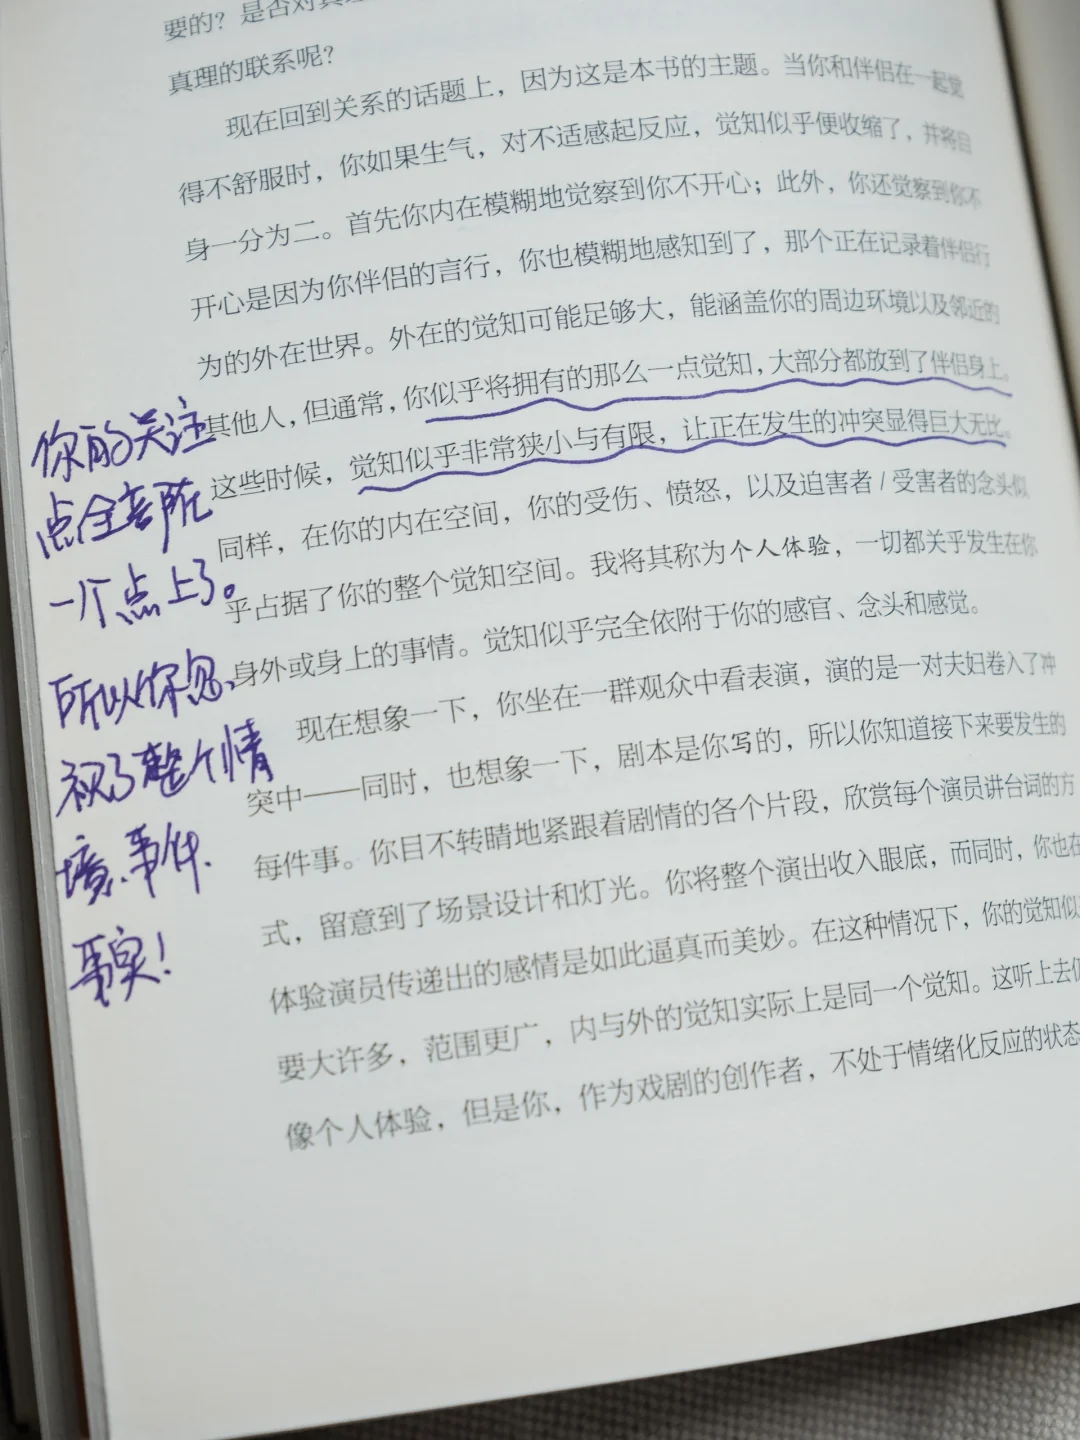 要的？是否对真理
真理的联系呢？
现在回到关系的话题上，因为这是本书的主题。当你和伴侣在一起觉
得不舒服时，你如果生气，对不适感起反应，觉知似乎便收缩了，并将自
身一分为二。首先你内在模糊地觉察到你不开心；此外，你还觉察到你不
开心是因为你伴侣的言行，你也模糊地感知到了，那个正在记录着伴侣行
为的外在世界。外在的觉知可能足够大，能涵盖你的周边环境以及邻近的
其他人，但通常，你似乎将拥有的那么一点觉知，大部分都放到了伴侣身上。
这些时候，觉知似乎非常狭小与有限，让正在发生的冲突显得巨大无比。
同样，在你的内在空间，你的受伤、愤怒，以及迫害者/受害者的念头似
乎占据了你的整个觉知空间。我将其称为个人体验，一切都关乎发生在你
身外或身上的事情。觉知似乎完全依附于你的感官、念头和感觉。
现在想象一下，你坐在一群观众中看表演，演的是一对夫妇卷入了冲
突中——同时，也想象一下，剧本是你写的，所以你知道接下来要发生的
每件事。你目不转睛地紧跟着剧情的各个片段，欣赏每个演员讲台词的方
式，留意到了场景设计和灯光。你将整个演出收入眼底，而同时，你也在
体验演员传递出的感情是如此逼真而美妙。在这种情况下，你的觉知似
要大许多，范围更广，内与外的觉知实际上是同一个觉知。这听上去
像个人体验，但是你，作为戏剧的创作者，不处于情绪化反应的状态
你的关注
点全部在
一个点上了。
所以你忽
视了整个情
境、事件、